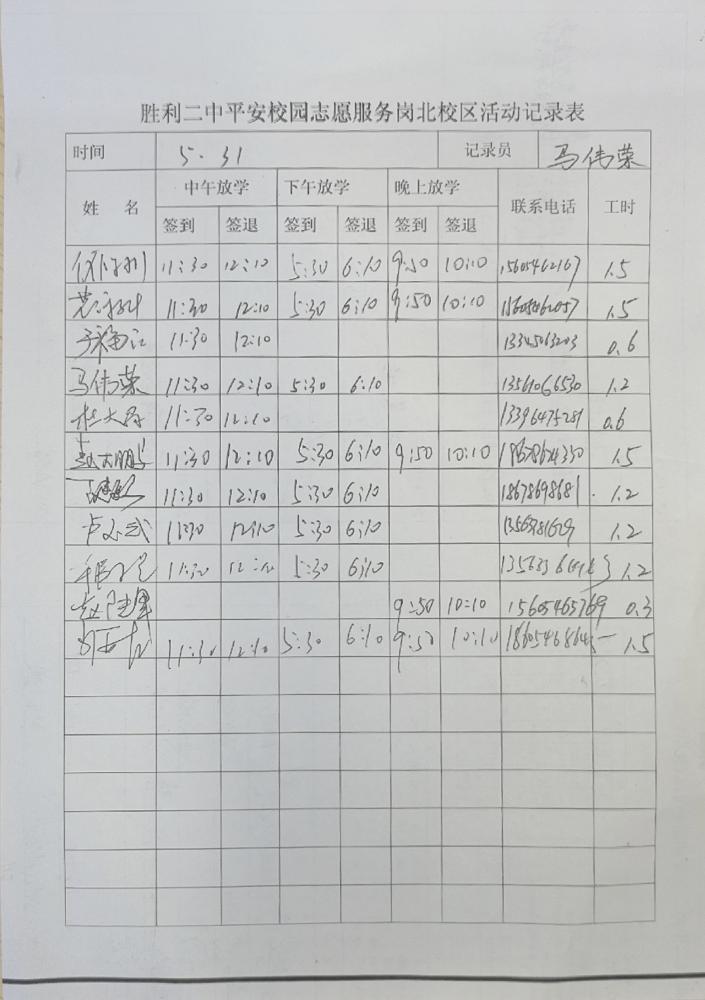 胜利二中平安校园志愿服务岗北校区活动记录表
时间 5.31 记录员 马伟荣
姓 名 中午放学 下午放学 晚上放学 联系电话 工时
签到 签退 签到 签退 签到 签退
11:30 12:10 5:30 6:10 9:50 10:10 15605462167 1.5
11:30 12:10 5:30 6:10 9:50 10:10 1.5
11:30 12:10 0.6
马伟荣 11:30 12:10 5:30 6:10 13561066530 1.2
11:30 12:10 13396475281 0.6
11:30 12:10 5:30 6:10 9:50 10:10 1.5
11:30 12:10 5:30 6:10 18678698681 1.2
11:30 12:10 5:30 6:10 1.2
11:30 12:10 5:30 6:10 1.2
9:50 10:10 15605465769 0.3
11:30 12:10 5:30 6:10 9:50 10:10 1.5